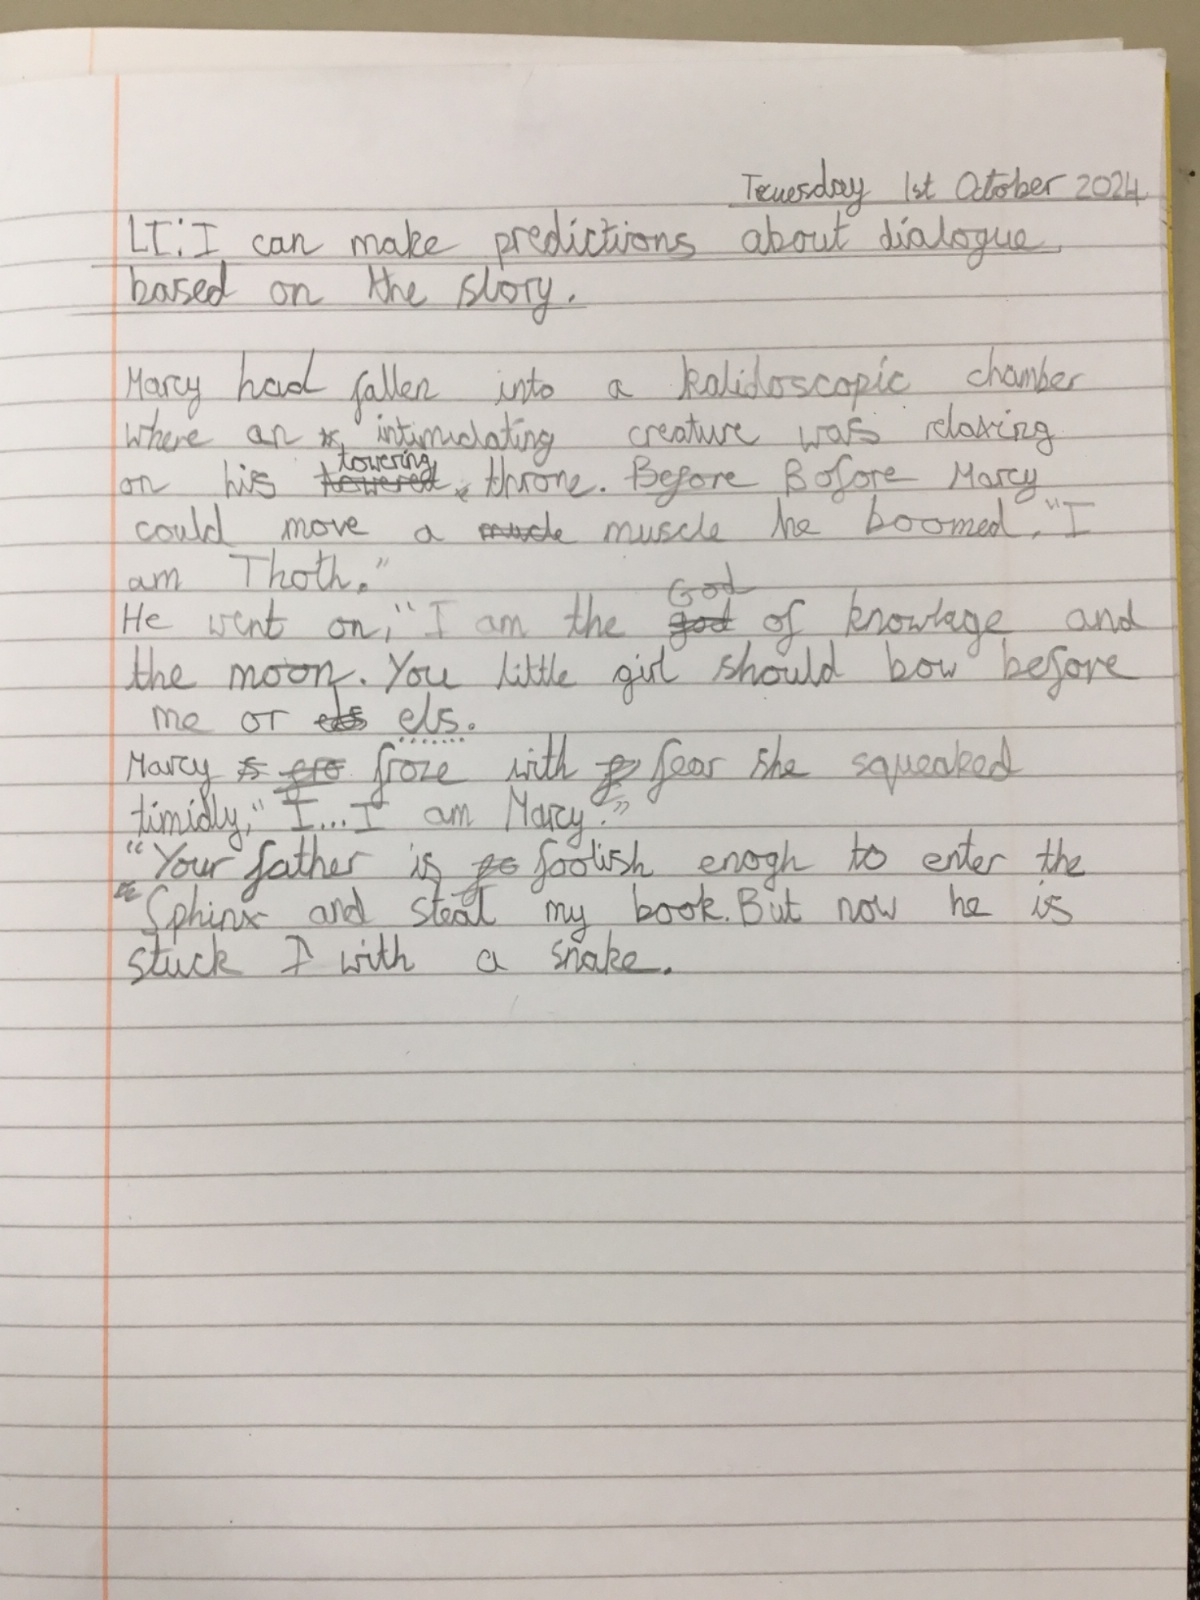 Teuesday 1st October 2024
LI: I can make predictions about dialogue
based on the story.
Marcy had fallen into a kalidoscopic chamber
where an intimidating creature was relaxing
on his towered towering throne. Before Before Marcy
could move a muscle he boomed, "I
am Thoth."
He went on, "I am the god God of knowlage and
the moon. You little girl should bow before
me or els els.
Marcy froze with fear she squeaked
timidly, "I...I am Marcy."
"Your father is foolish enogh to enter the
Sphinx and steal my book. But now he is
stuck I with a snake.